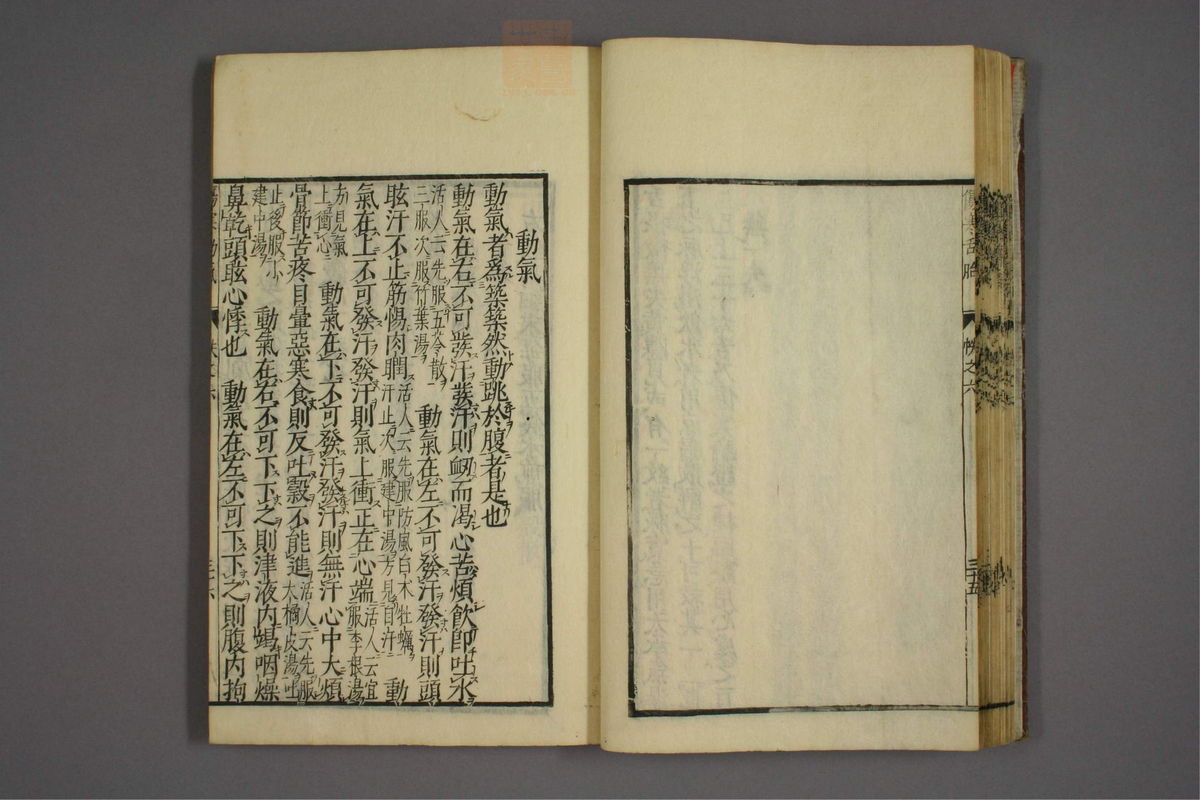 三十五
動氣
動氣者爲築築然動跳於腹者是也
動氣在右不可發汗發汗則衂而渴心苦煩飲卽吐水
活人云先服五苓散二三服次服竹葉湯 動氣在左不可發汗發汗則頭
眩汗不止筋惕肉瞤 活人云先服防風白朮牡蠣汗止次服建中湯方見自汗 動
氣在上不可發汗發汗則氣上衝正在心端 活人云宜服李根湯
方見氣上衝心 動氣在下不可發汗發汗則無汗心中大煩
骨節苦疼目暈惡寒食則反吐穀不能進 活人云先服大橘皮湯吐
止後服小建中湯 動氣在右不可下下之則津液內竭咽燥
鼻乾頭眩心悸也 動氣在左不可下下之則腹內拘